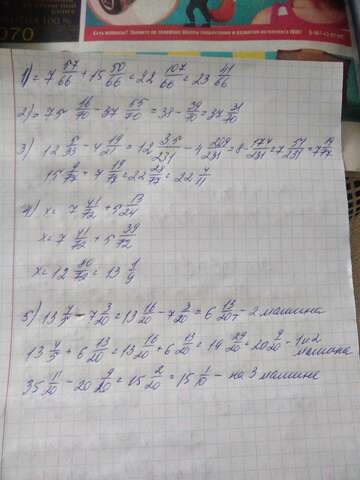 070
1) = 7 57/66 + 15 50/66 = 22 107/66 = 23 41/66
2) = 75 16/70 - 37 55/70 = 38 - 39/70 = 37 31/70
3) 12 5/33 - 4 19/21 = 12 35/231 - 4 209/231 = 8 - 174/231 = 7 57/231 = 7 19/77
15 9/77 + 7 19/77 = 22 28/77 = 22 4/11
4) x = 7 41/72 + 5 13/24
x = 7 41/72 + 5 39/72
x = 12 80/72 = 13 1/9
5) 13 4/5 - 7 3/20 = 13 16/20 - 7 3/20 = 6 13/20 т - 2 машина
13 4/5 + 6 13/20 = 13 16/20 + 6 13/20 = 19 29/20 = 20 9/20 - 1 и 2 машина
35 11/20 - 20 9/20 = 15 2/20 = 15 1/10 - на 3 машине